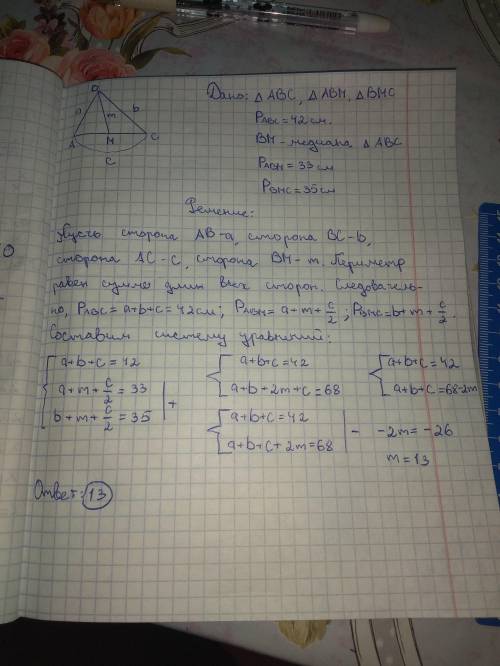 Дано: △ABC, △ABM, △BMC
P_ABC = 42 см.
BM - медиана △ABC
P_ABM = 33 см
P_BMC = 35 см
a m b
A M C
c
Решение:
Пусть сторона AB-a, сторона BC-b,
сторона AC-c, сторона BM-m. Периметр
равен сумме длин всех сторон. Следователь-
но, P_ABC = a+b+c = 42 см; P_ABM = a+m+c/2; P_BMC = b+m+c/2.
Составим систему уравнений:
{ a+b+c=42
a+m+c/2=33
b+m+c/2=35 | +
{ a+b+c=42
a+b+2m+c=68
{ a+b+c=42
a+b+c=68-2m
{ a+b+c=42
a+b+c+2m=68 | -
-2m=-26
m=13
Ответ: 13